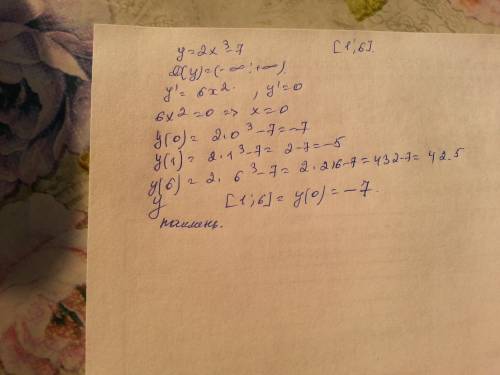 y=2x³-7 [1;6].
D(y)=(-∞;+∞).
y'=6x². , y'=0
6x²=0 => x=0
y(0)= 2·0³-7=-7
y(1)= 2·1³-7= 2-7=-5
y(6)= 2·6³-7= 2·216-7=432-7=425
y [1;6]= y(0)=-7.
наимень.